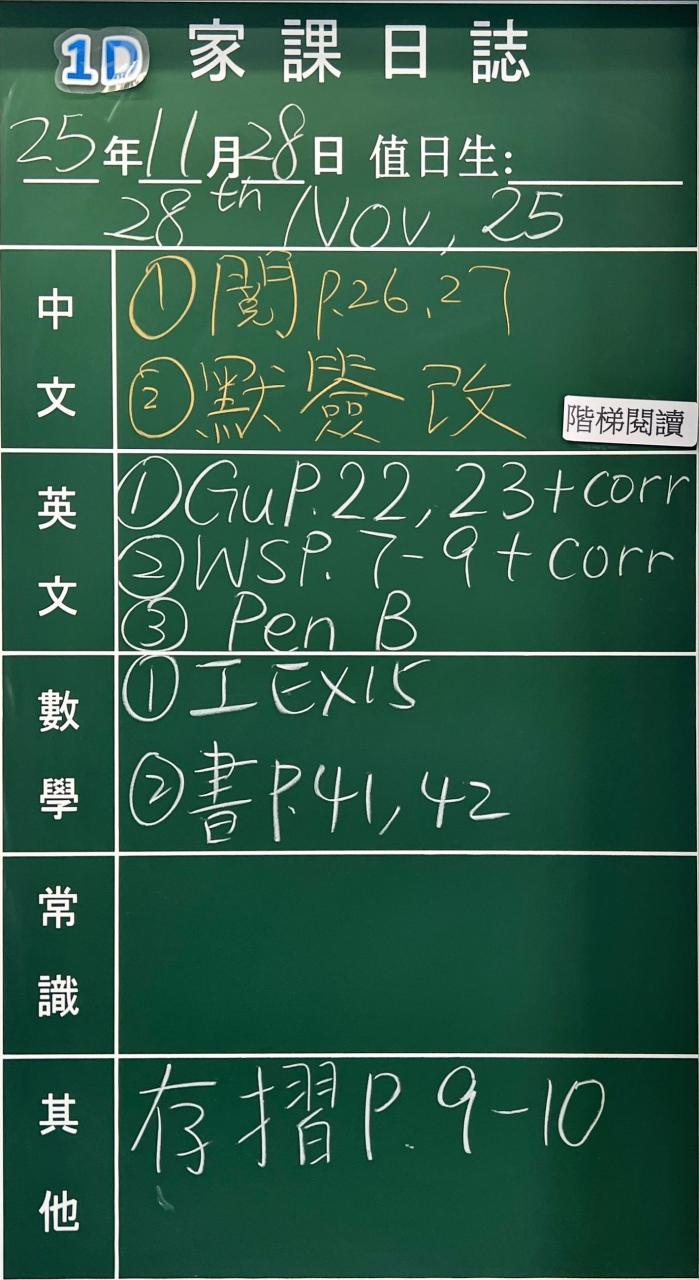 1D 家課日誌
25年11月28日 值日生:
28th Nov, 25
中文
①閱P.26,27
②默簽改
階梯閱讀
英文
①GuP.22,23+corr
②WSP.7-9+corr
③Pen B
數學
①工EX15
②書P.41,42
常識
其他
存摺P.9-10